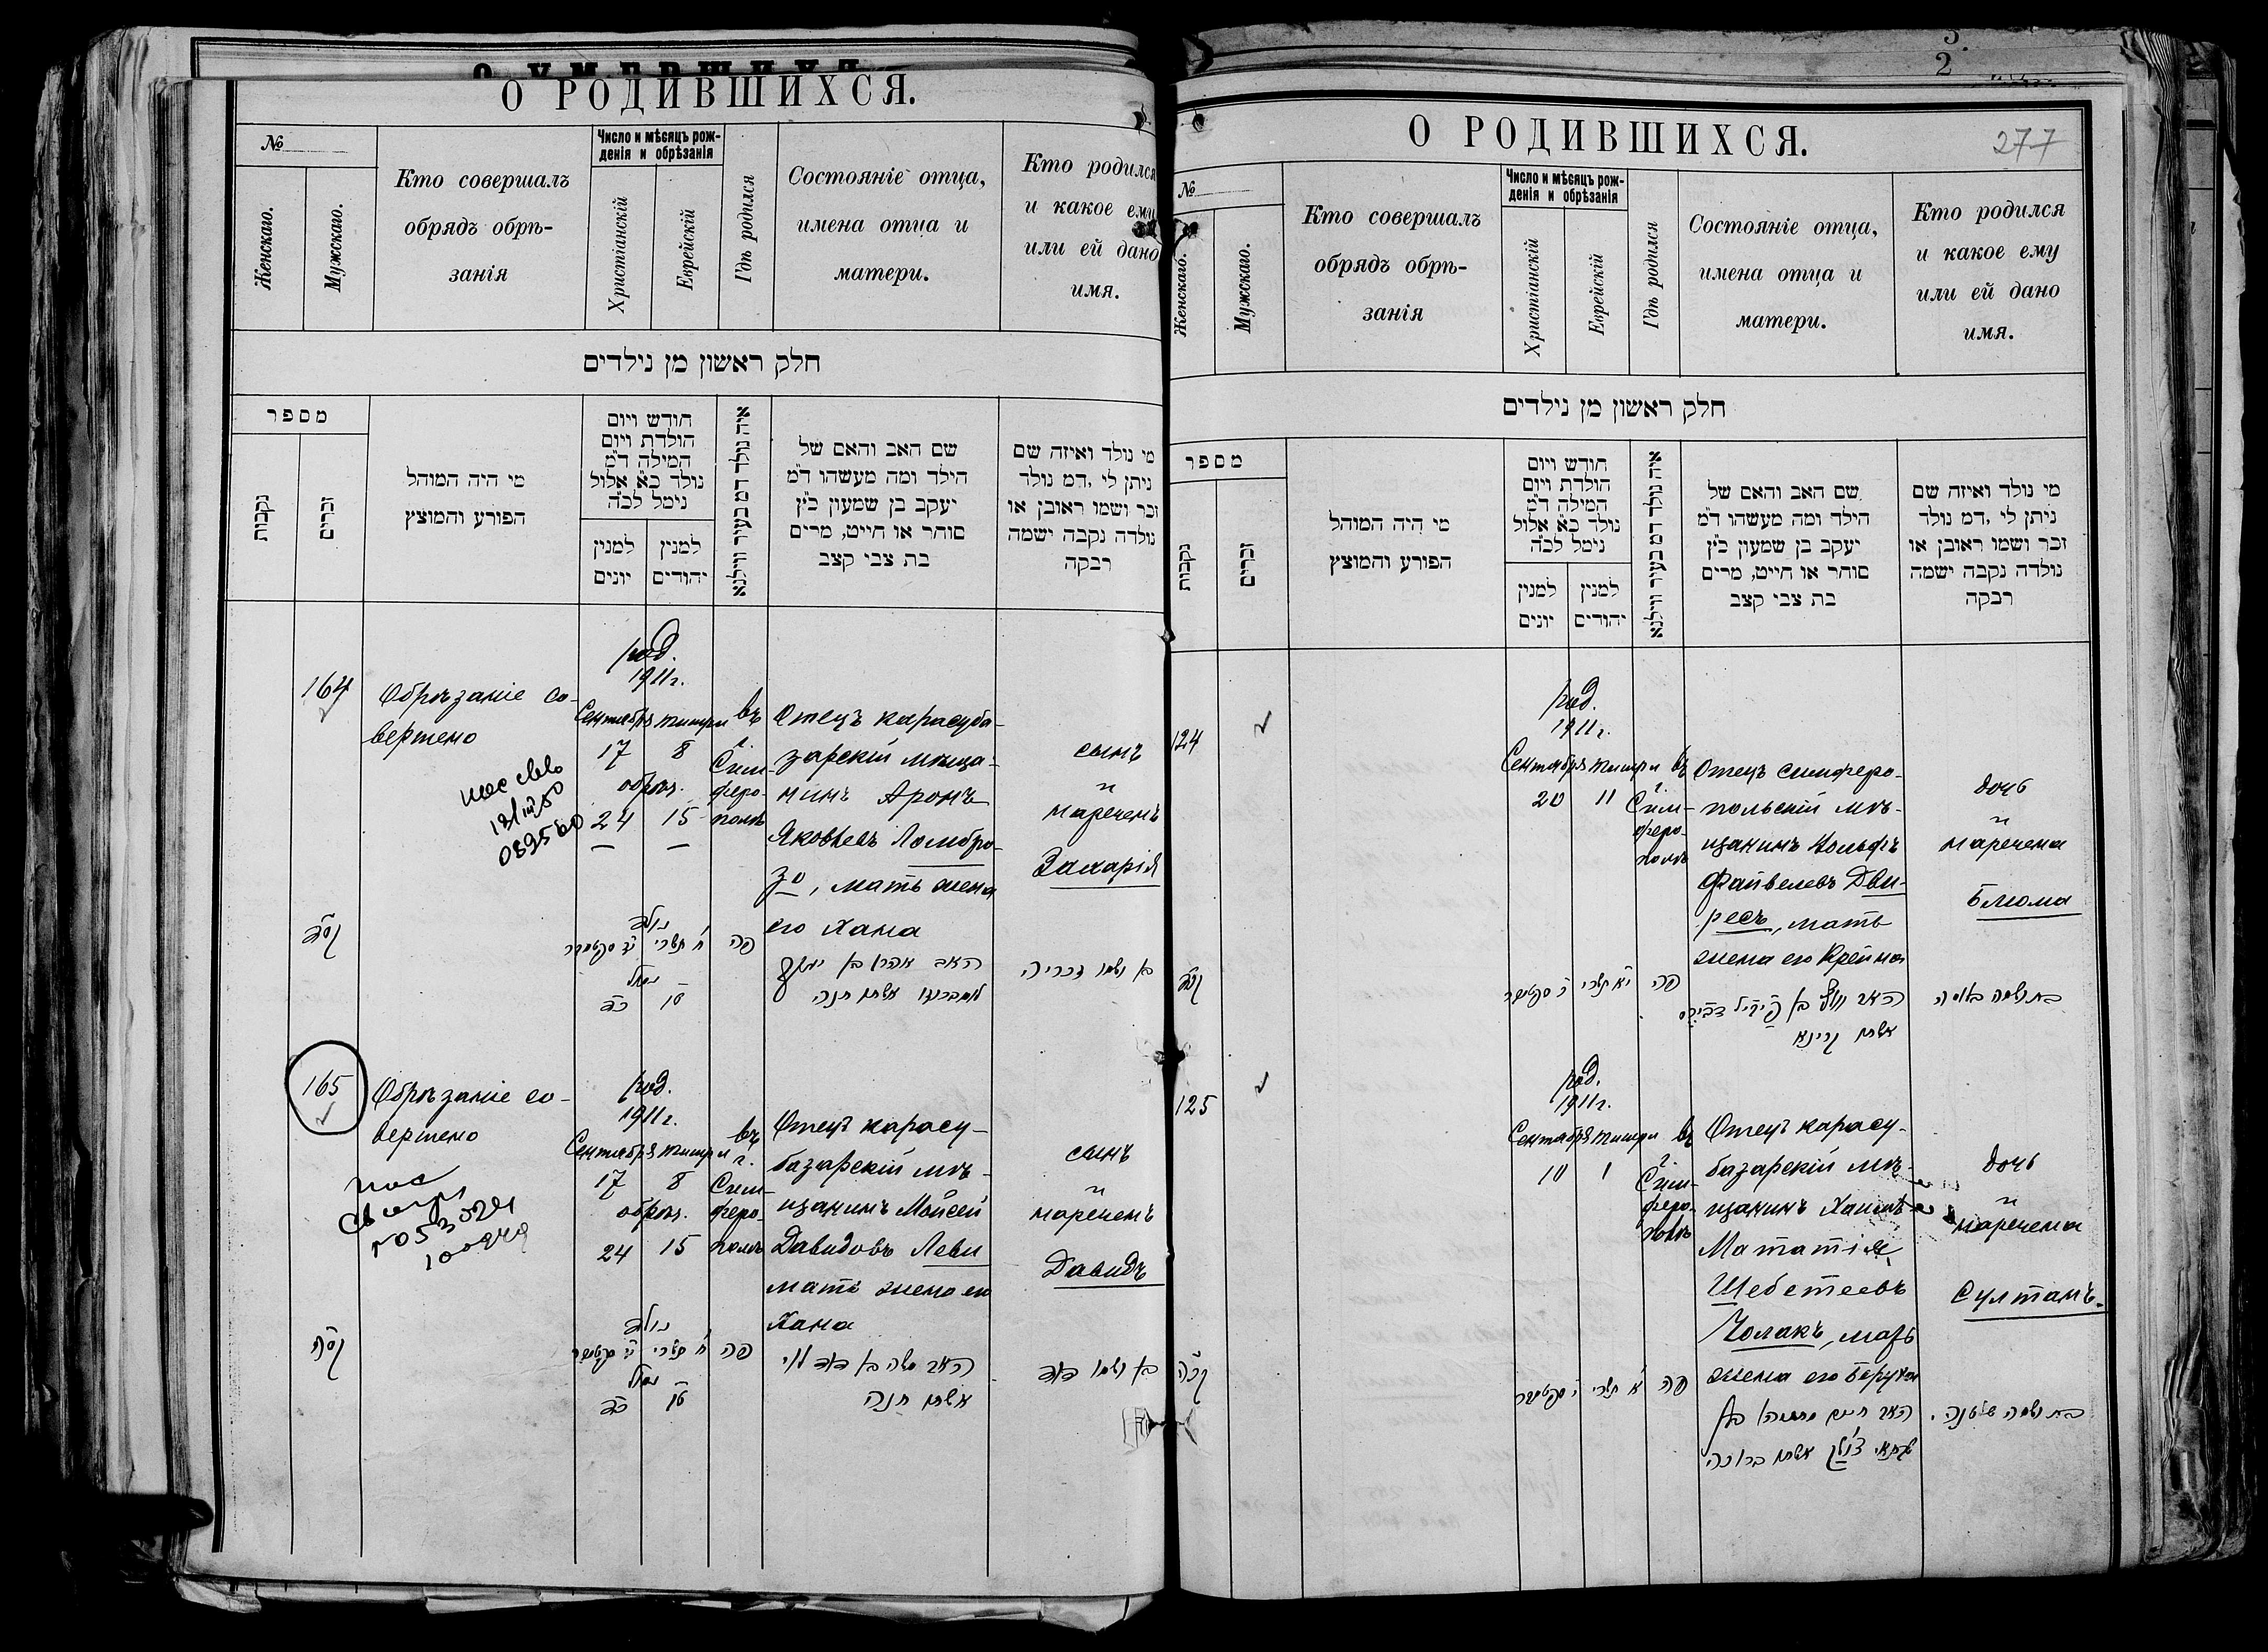 О РОДИВШИХСЯ.
№
Женскаго.
Мужскаго.
Кто совершалъ
обрядъ обрѣ-
занія
Число и мѣсяцъ рож-
денія и обрѣзанія
Христіанскій
Еврейскій
Гдѣ родился
Состояніе отца,
имена отца и
матери.
Кто родился
и какое ему
или ей дано
имя.
חלק ראשון מן נילדים
מספר
נקבות
זכרים
מי היה המוהל
הפורע והמוצץ
חודש ויום
הולדת ויום
המילה ד״מ
נולד כ״א אלול
נימל לכ״ה
למנין
יונים
למנין
יהודים
איה נולד דמ בעיר ווילנא
שם האב והאם של
הילד ומה מעשהו ד״מ
יעקב בן שמעון כ״ץ
סוחר או חייט, מרים
בת צבי קצב
מי נולד ואיזה שם
ניתן לי ,דמ נולד
זכר ושמו ראובן או
נולדה נקבה ישמה
רבקה
164
Обрѣзаніе со-
вершено
род.
1911г.
Сентября тишри
17 8
обрѣз.
24 15
въ
г.
Сим-
феро-
полѣ
Отецъ карасуба-
зарскій мѣща-
нинъ Аронъ
Яковлевъ Ломбро-
зо, мать жена
его Хана
сынъ
и
нареченъ
Захарія
קסד
נולד
ח תשרי
נמול
טו
כד
פה
האב אהרן בן יעקב
לומברוזו אשתו חנה
בן ושמו זכריה
165
Обрѣзаніе со-
вершено
род.
1911г.
Сентября тишри
17 8
обрѣз.
24 15
въ
г.
Сим-
феро-
полѣ
Отецъ карасу-
базарскій мѣ-
щанинъ Мойсей
Давидовъ Леви
мать жена его
Хана
сынъ
и
нареченъ
Давидъ
קסה
נולד
ח תשרי
נמול
טו
כד
פה
האב משה בן דוד לוי
אשתו חנה
בן ושמו דוד
О РОДИВШИХСЯ.
277
№
Женскаго.
Мужскаго.
Кто совершалъ
обрядъ обрѣ-
занія
Число и мѣсяцъ рож-
денія и обрѣзанія
Христіанскій
Еврейскій
Гдѣ родился
Состояніе отца,
имена отца и
матери.
Кто родился
и какое ему
или ей дано
имя.
חלק ראשון מן נילדים
מספר
נקבות
זכרים
מי היה המוהל
הפורע והמוצץ
חודש ויום
הולדת ויום
המילה ד״מ
נולד כ״א אלול
נימל לכ״ה
למנין
יונים
למנין
יהודים
איה נולד דמ בעיר ווילנא
שם האב והאם של
הילד ומה מעשהו ד״מ
יעקב בן שמעון כ״ץ
סוחר או חייט, מרים
בת צבי קצב
מי נולד ואיזה שם
ניתן לי ,דמ נולד
זכר ושמו ראובן או
נולדה נקבה ישמה
רבקה
124
род.
1911г.
Сентября тишри
20 11
въ
г.
Сим-
феро-
полѣ
Отецъ симферо-
польскій мѣ-
щанинъ Вольфъ
Файвелевъ Дви-
ресъ, мать
жена его Крейна
дочь
и
наречена
Блюма
יא תשרי
פה
אשתו קריינא
בת ושמה בלומה
125
род.
1911г.
Сентября тишри
10 1
въ
г.
Сим-
феро-
полѣ
Отецъ карасу-
базарскій мѣ-
щанинъ Хаимъ
Мататія
Шебетеевъ
Чолакъ, мать
жена его Беруха
дочь
и
наречена
Султанъ.
קכה
א תשרי
פה
האב חיים מתתיהו בן
שבתאי צולק אשתו ברוכה
בת ושמה שולטנה.